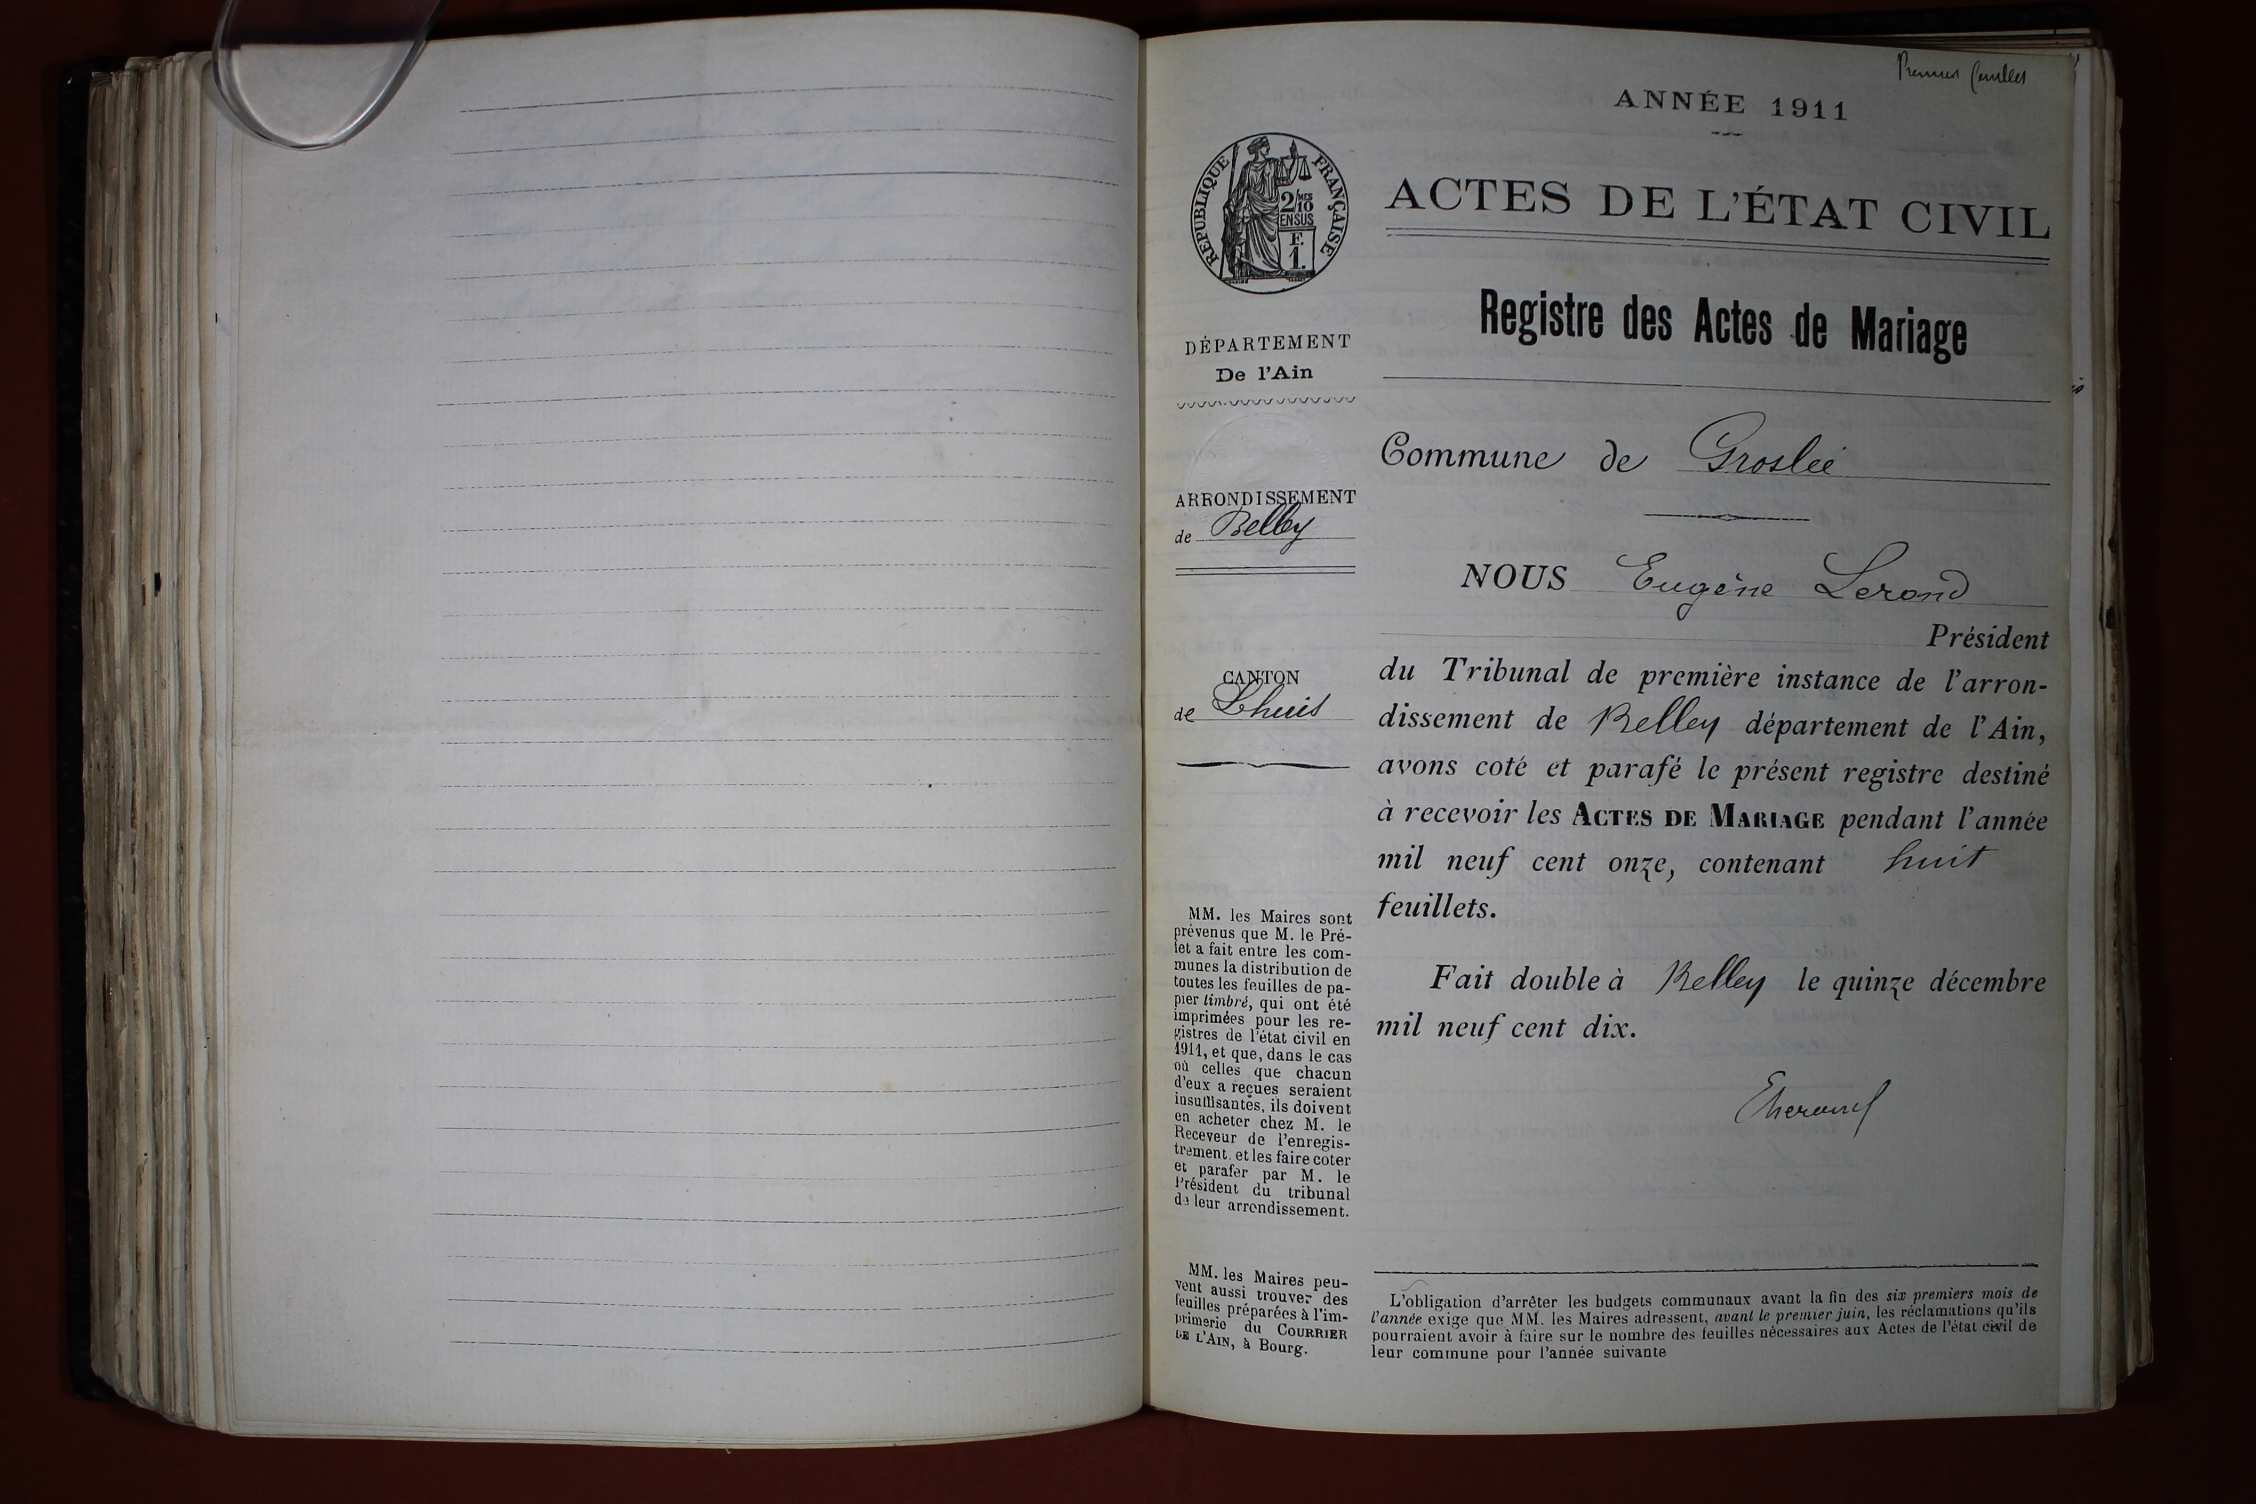 Premier feuillet
ANNÉE 1911
RÉPUBLIQUE FRANÇAISE
2/10MES
EN SUS
F.
1.
ACTES DE L'ÉTAT CIVIL
Registre des Actes de Mariage
DÉPARTEMENT
De l'Ain
ARRONDISSEMENT
de Belley
CANTON
de Lhuis
MM. les Maires sont
prévenus que M. le Pré-
fet a fait entre les com-
munes la distribution de
toutes les feuilles de pa-
pier timbré, qui ont été
imprimées pour les re-
gistres de l'état civil en
1911, et que, dans le cas
où celles que chacun
d'eux a reçues seraient
insuffisantes, ils doivent
en acheter chez M. le
Receveur de l'enregis-
trement et les faire coter
et parafer par M. le
Président du tribunal
de leur arrondissement.
MM. les Maires peu-
vent aussi trouver des
feuilles préparées à l'im-
primerie du COURRIER
DE L'AIN, à Bourg.
Commune de Groslée
NOUS Eugène Lerond
Président
du Tribunal de première instance de l'arron-
dissement de Belley département de l'Ain,
avons coté et parafé le présent registre destiné
à recevoir les ACTES DE MARIAGE pendant l'année
mil neuf cent onze, contenant huit
feuillets.
Fait double à Belley le quinze décembre
mil neuf cent dix.
L'obligation d'arrêter les budgets communaux avant la fin des six premiers mois de
l'année exige que MM. les Maires adressent, avant le premier juin, les réclamations qu'ils
pourraient avoir à faire sur le nombre des feuilles nécessaires aux Actes de l'état civil de
leur commune pour l'année suivante